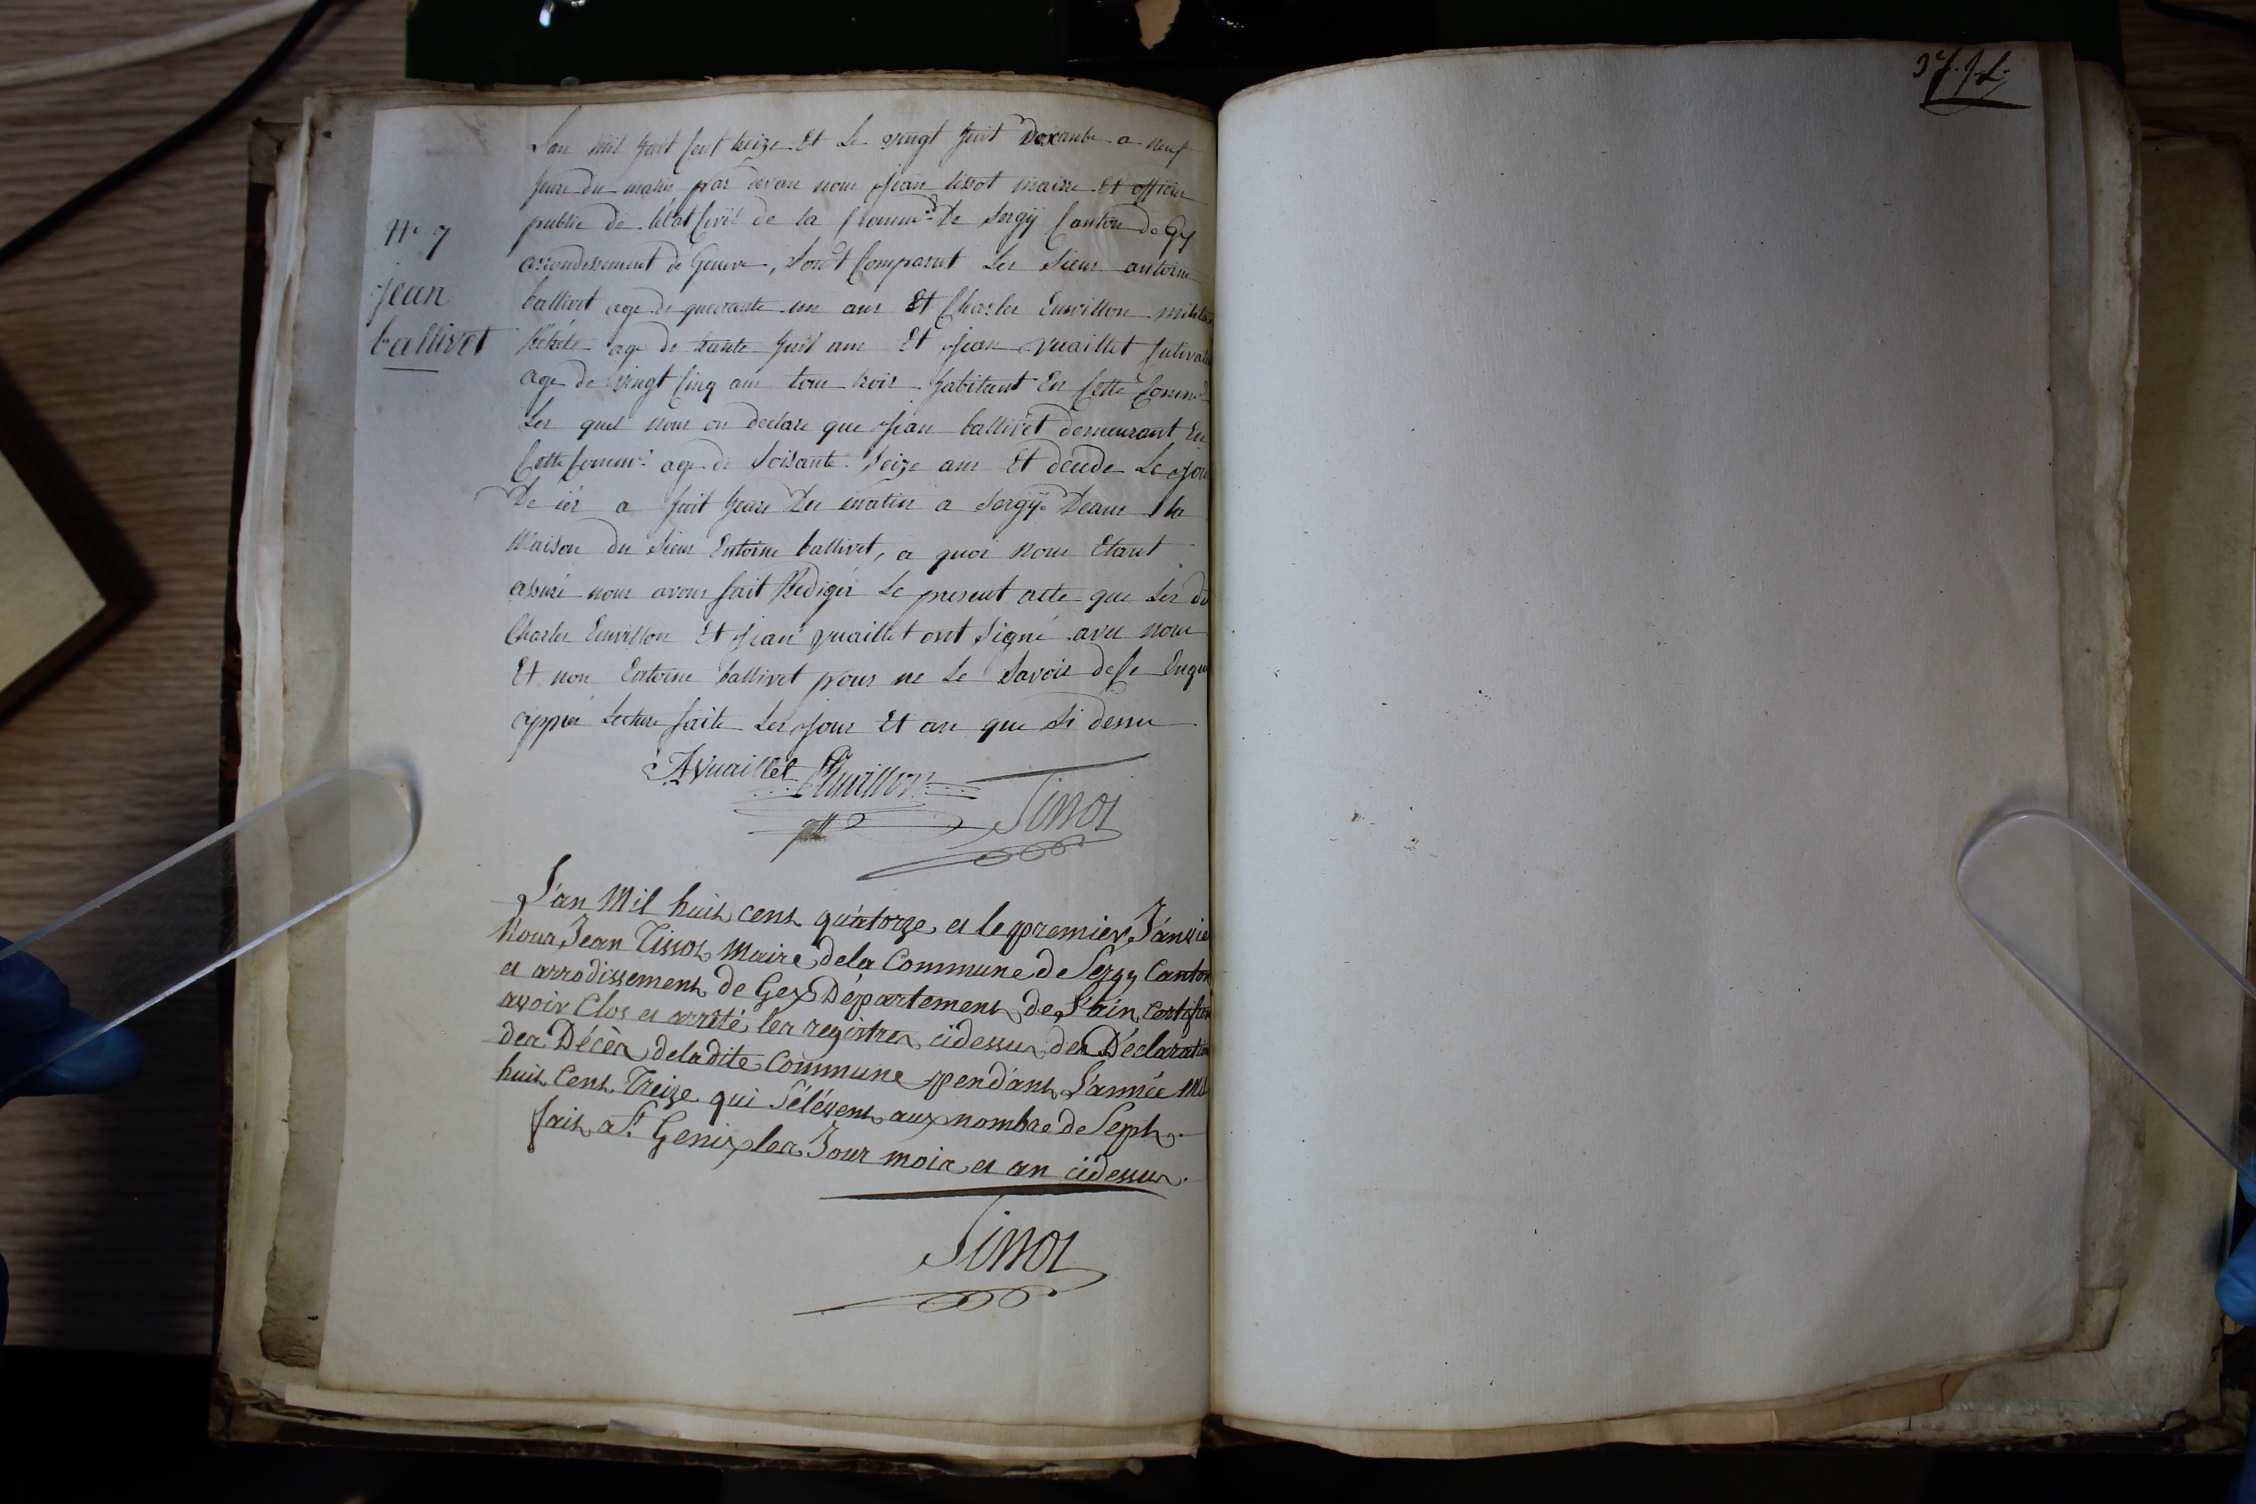 37. J.L.
N° 7
jean
ballivet
Lan mil huit cent treize Et Le vingt huit Decembre a neuf
heure du matin par devan nous jean tissot maire Et officier
public de létat Civil de la Commune De Sergÿ Canton de Gex
arrondissement de Geneve, Sont Comparut Les Sieur antoine
ballivet age de quarante un ans Et Charles Emvillon
age de trante huit ans Et jean vuaillet
age de vingt Cinq ans tous trois habitant En Cette Comm.
Les quel nous on declaré que jean ballivet demeurant En
Cette Comm. age de Soisante Seize ans Et decede Le jour
De ier a huit heure Du matin a Sergÿ Dans la
Maison du Sieur Entoine ballivet, a quoi nous Etant
assuré nous avons fait Rediger Le present acte que Les dit
Charles Emvillon Et jean vuaillet ont Signé avec nous
Et non Entoine ballivet pour ne Le Savoir de Ce Enqui
appré Lecture faite Les jour Et an que Si dessu
Vuaillet Emvillon Tissot
L'an Mil huit cent quatorze et le premier Janvier
Nous Jean Tissot Maire de la Commune de Sergy Canton
et arrodissement de Gex Département de L'ain certifion
avoir Clos et arrêté les registres cidessus des Déclaration
des Décès deladite Commune pendant L'année mil
huit Cent Treize qui S'élévent aux nombre de Sept.
fait a St Genix les Jour mois et an cidessus.
Tissot